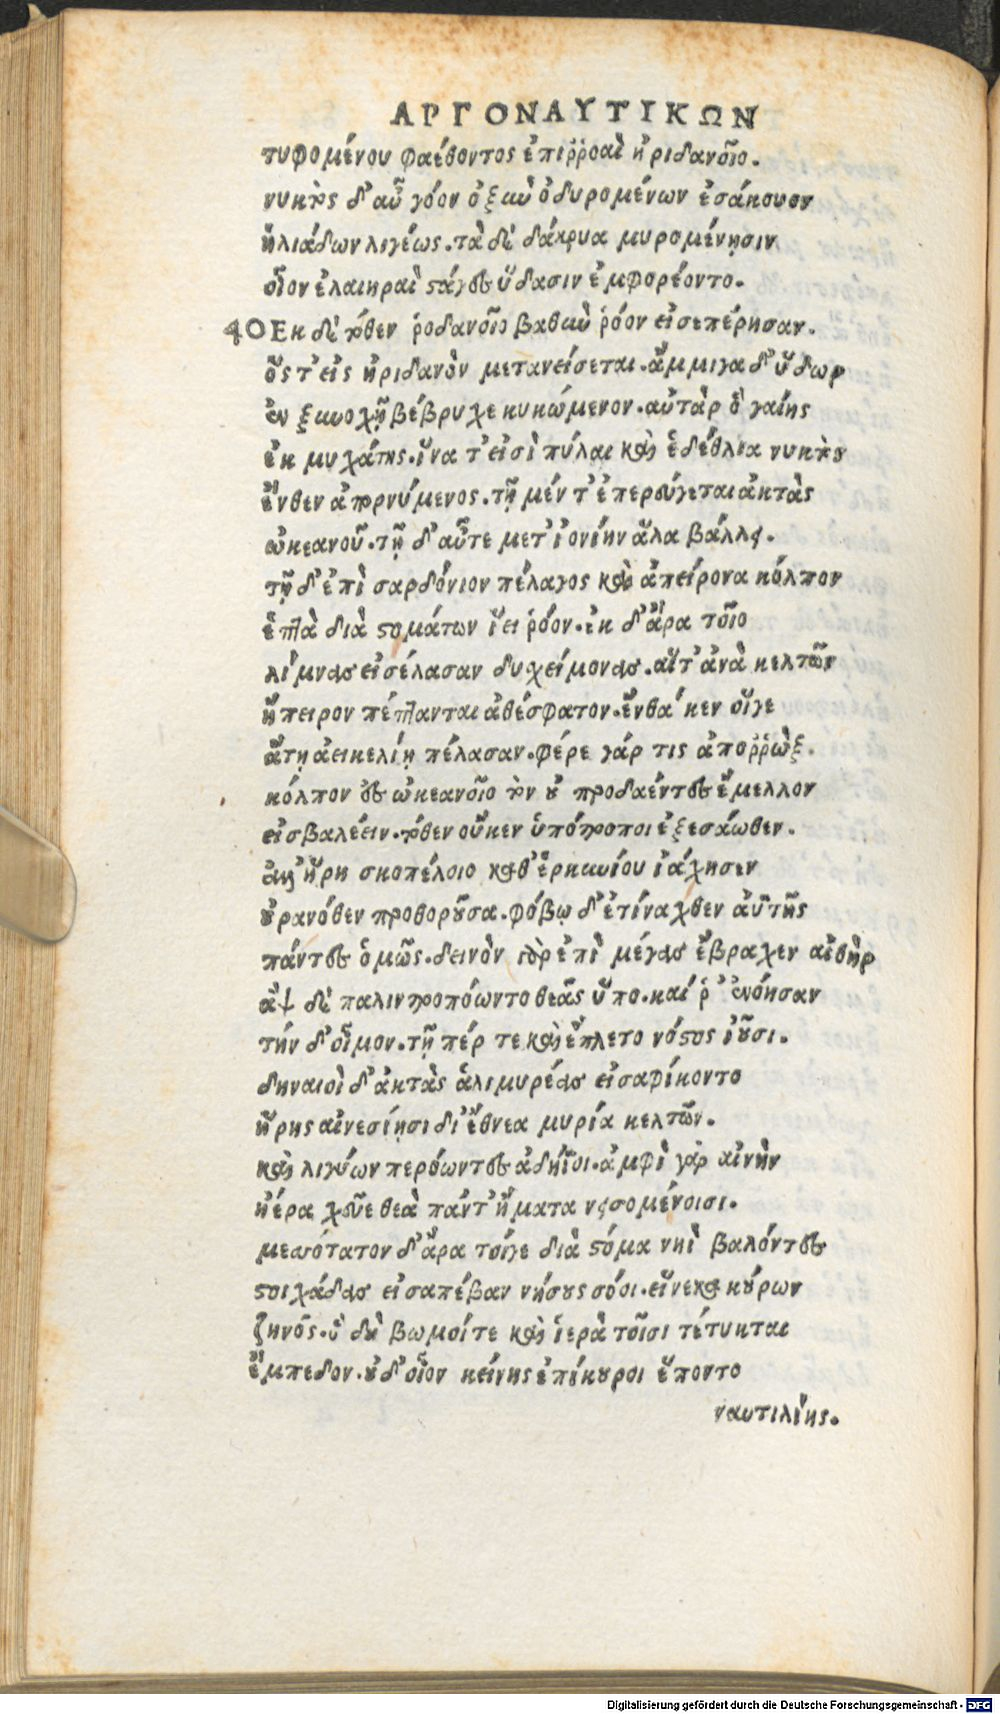 ΑΡΓΟΝΑΥΤΙΚΩΝ
τυφομένου φαέθοντος ἐπιῤῥοαὶ ἠριδανοῖο.
νυκτὸς δ' αὖ γόον ὀξὺν ὀδυρομένων ἐσάκουον
ἡλιάδων λιγέως. τὰ δὲ δάκρυα μυρομένῃσιν
οἷον ἐλαιηραὶ στάγες ὕδασιν ἐμφορέοντο.
40 Εκ δὲ τόθεν ῥοδανοῖο βαθὺν ῥόον εἰσεπέρησαν.
ὅς τ' εἰς ἠριδανὸν μετανείσεται. ἄμμιγα δ' ὕδωρ
ἐν ξυνοχῇ βέβρυχε κυκώμενον. αὐτὰρ ὁ γαίης
ἐκ μυχάτης. ἵνα τ' εἰσὶ πύλαι καὶ ἐδέθλια νυκτὸς
ἔνθεν ἀπορνύμενος. τῇ μέν τ' ἐπερεύγεται ἀκτὰς
ὠκεανοῦ. τῇ δ' αὖτε μετ' ἰονίην ἅλα βάλλει.
τῇ δ' ἐπὶ σαρδόνιον πέλαγος καὶ ἀπείρονα κόλπον
ἑπτὰ διὰ στομάτων ἵει ῥόον. ἐκ δ' ἄρα τοῖο
λίμνας εἰσέλασαν δυχείμονας. αἵτ' ἀνὰ κελτῶν
ἤπειρον πέπτανται ἀθέσφατον. ἔνθα κεν οἵγε
ἄτῃ ἀεικελίῃ πέλασαν. φέρε γάρ τις ἀποῤῥὼξ.
κόλπον ἐς ὠκεανοῖο τὸν οὐ προδαέντες ἔμελλον
εἰσβαλέειν. τόθεν οὔκεν ὑπότροποι ἐξεσάωθεν.
ἀλλ' ἥρη σκοπέλοιο καθ' ἑρκυνίου ἰάχησεν
οὐρανόθεν προθοροῦσα. φόβῳ δ' ἐτίναχθεν ἀϋτῆς
πάντες ὁμῶς. δεινὸν γὰρ ἐπὶ μέγας ἔβραχεν αἰθὴρ
ἂψ δὲ παλιντροπόωντο θεᾶς ὕπο. καί ῥ' ἐνόησαν
τήν δ' οἶμον. τῇ πέρ τε καὶ ἔπλετο νόστος ἰοῦσι.
δηναιοὶ δ' ἀκτὰς ἁλιμυρέας εἰσαφίκοντο
ἥρης αἰνεσίῃσι δι' ἔθνεα μυρία κελτῶν.
καὶ λιγύων περόωντες ἀδήϊοι. ἀμφὶ γὰρ αἰνὴν
ἠέρα χεῦε θεὰ πάντ' ἤματα νεισομένοισι.
μεσσότατον δ' ἄρα τοίγε διὰ στόμα νηῒ βαλόντες
στοιχάδας εἰσαπέβαν νήσους σόοι. εἵνεκα κούρων
ζηνός. ὃ δὴ βωμοίτε καὶ ἱερὰ τοῖσι τέτυκται
ἔμπεδον. οὐδ' οἶον κείνης ἐπίκουροι ἕποντο
ναυτιλίης.
Digitalisierung gefördert durch die Deutsche Forschungsgemeinschaft - DFG